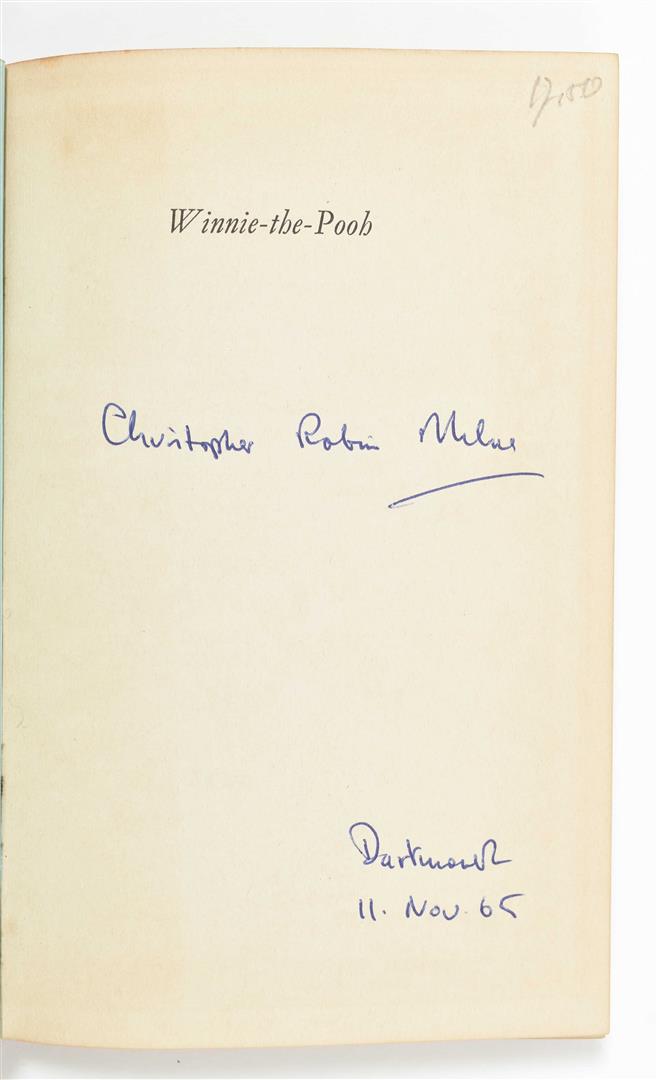 17,50
Winnie-the-Pooh
Christopher Robin Milne
Dartmouth
11. Nov. 65